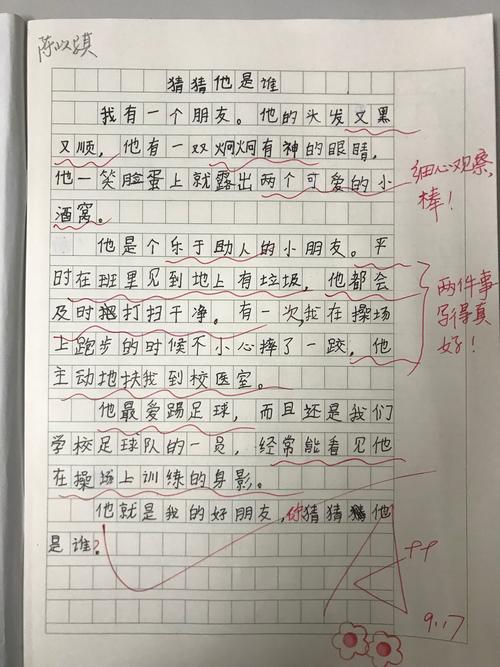 陈以骐
猜猜他是谁
我有一个朋友。他的头发又黑
又顺，他有一双炯炯有神的眼睛，
他一笑脸蛋上就露出两个可爱的小
酒窝。
细心观察，
棒！
他是个乐于助人的小朋友。平
时在班里见到地上有垃圾，他都会
及时把打扫干净。有一次，我在操场
上跑步的时候不小心摔了一跤，他
主动地扶我到校医室。
两件事
写得真
好！
他最爱踢足球，而且还是我们
学校足球队的一员，经常能看见他
在操场上训练的身影。
他就是我的好朋友，你猜猜他
是谁？
9.17